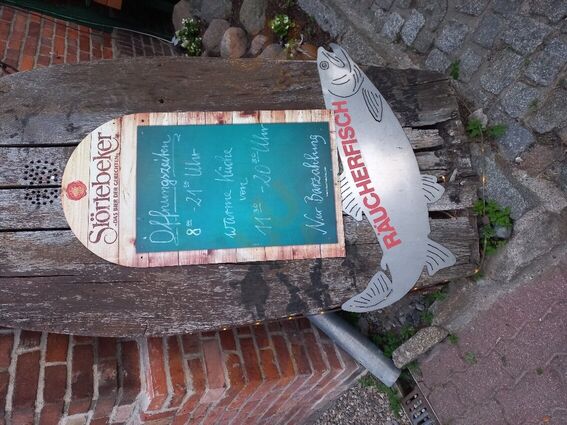 Störtebeker
DAS BIER DER GERECHTEN
Öffnungszeiten
8⁰⁰ - 21⁰⁰ Uhr
Warme Küche
von
11³⁰ - 20⁰⁰ Uhr
Nur Barzahlung
RÄUCHERFISCH